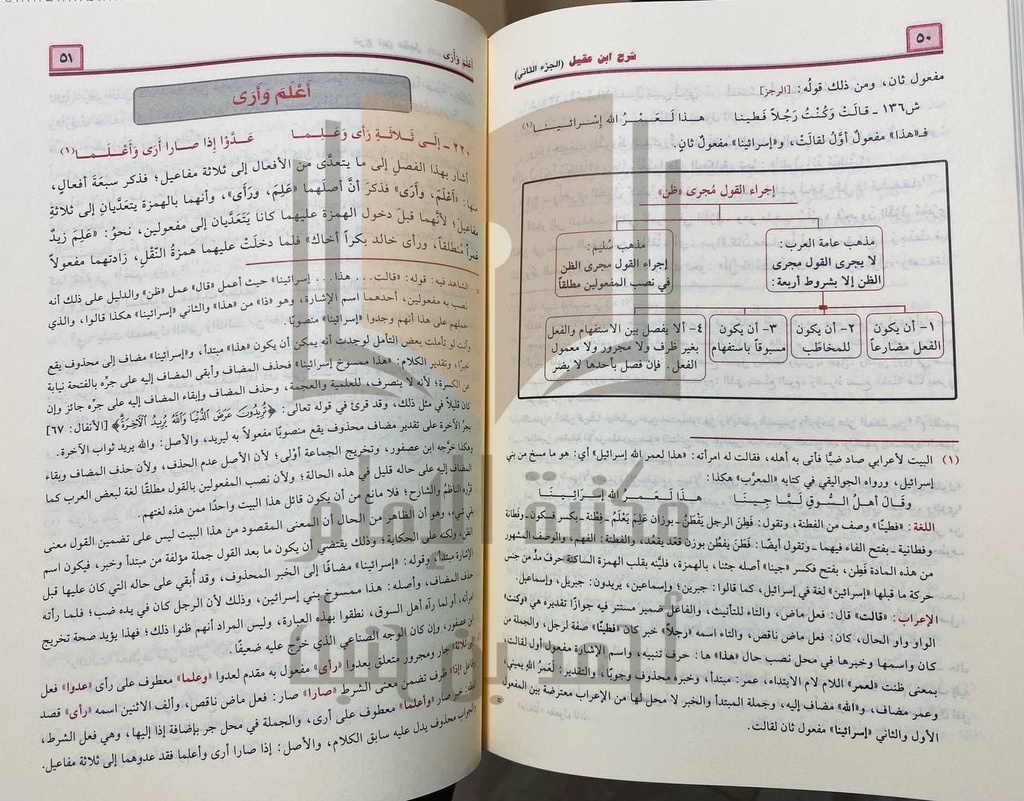 ٥٠
شرح ابن عقيل (الجزء الثاني)
مفعول ثان، ومن ذلك قولُه: [الرجز]
ش١٣٦ ـ قالَتْ وَكُنْتُ رَجُلاً فَطِينا هـذا لَـعَـمْـرُ الله إِسْـرائـيـنـا(١)
فـ«هذا» مفعول أوَّل لقالَتْ، و«إسرائينا» مفعولٌ ثانٍ.
إجراء القول مُجرى «ظن»
مذهب عامة العرب:
لا يجرى القول مجرى
الظن إلا بشروط أربعة:
مذهب سُليم:
إجراء القول مجرى الظن
في نصب المفعولين مطلقاً
١- أن يكون
الفعل مضارعاً
٢- أن يكون
للمخاطَب
٣- أن يكون
مسبوقاً باستفهام
٤- ألا يفصل بين الاستفهام والفعل
بغير ظرف ولا مجرور ولا معمول
الفعل. فإن فصل بأحدها لا يضر
(١) البيت لأعرابي صاد ضبًّا فأتى به أهله، فقالت له امرأته: «هذا لعمر الله إسرائيل» أي: هو ما مسخ من بني
إسرائيل، ورواه الجواليقي في كتابه «المعرَّب» هكذا:
وقـالَ أهـلُ الـسُّـوقِ لَـمَّـا جِـيـنَـا هـذا لَـعَـمـرُ الله إسْـرائـيـنَـا
اللغة: «فطينًا» وصف من الفطنة، وتقول: فَطِنَ الرجل يَفْطَنُ ـ بوزان عَلِمَ يَعْلَمُ ـ فِطنة ـ بكسر فسكون ـ وفطانة
وفطانية ـ بفتح الفاء فيهما ـ وتقول أيضًا: فَطَنَ يَفطُن بوزن قعَد يقعُد، والفطنة: الفهم، والوصف المشهور
من هذه المادة فَطِن، بفتح فكسر «جينا» أصله جئنا، بالهمزة، فليَّنه بقلب الهمزة الساكنة حرفَ مدٍّ من جنس
حركة ما قبلها «إسرائين» لغة في إسرائيل، كما قالوا: جبرين؛ وإسماعين، يريدون: جبريل، وإسماعيل.
الإعراب: «قالت» قال: فعل ماض، والتاء للتأنيث، والفاعل ضمير مستتر فيه جوازًا تقديره: هي «وكنت»
الواو واو الحال، كان: فعل ماض ناقص، والتاء اسمه «رجلاً» خبر كان «فطينًا» صفة لرجل، والجملة من
كان واسمها وخبرها في محل نصب حال «هذا» ها: حرف تنبيه، واسم الإشارة مفعول أول لقالت،
بمعنى ظنت «لعمر» اللام لام الابتداء، عمر: مبتدأ، وخبره محذوف وجوبًا، والتقدير: لَعَمرُ الله يميني،
وعمر مضاف، و«الله» مضاف إليه، وجملة المبتدأ والخبر لا محل لها من الإعراب معترضة بين المفعول
الأول والثاني «إسرائينا» مفعول ثان لقالت.
أَعْلَمَ وَأَرَى
٥١
أَعْلَمَ وَأَرَى
٢٢٠ ـ إِلَـى ثَـلاثَـةٍ رَأى وَعَـلِـمـا عَـدَّوْا إِذَا صـارا أَرَى وَأَعْـلَـمـا(١)
أشار بهذا الفصل إلى ما يتعدَّى من الأفعال إلى ثلاثة مفاعيل؛ فذكر سبعَة أفعال،
منها: «أَعْلَمَ، وأَرَى» فذكرَ أنَّ أصلَهما «عَلِمَ، ورَأى»، وأنهما بالهمزة يتعدَّيان إلى ثلاثةِ
مفاعيلَ؛ لأنَّهما قبلَ دخول الهمزة عليهما كانا يَتَعدَّيان إلى مفعولين، نحوُ: «عَلِمَ زيدٌ
عَمراً مُنطلقاً، ورأى خالد بكراً أخاك» فلما دخلَتْ عليهما همزةُ النَّقْلِ، زادتهما مفعولاً
= الشاهد فيه: قوله: «قالت... هذا... إسرائينا» حيث أعمل «قال» عمل «ظن» والدليل على ذلك أنه
نصب به مفعولين، أحدهما اسم الإشارة، وهو «ذا» من «هذا» والثاني «إسرائينا» هكذا قالوا، والذي
حملهم على هذا أنهم وجدوا «إسرائينا» منصوبًا.
وأنت لو تأملت بعض التأمل لوجدت أنه يمكن أن يكون «هذا» مبتدأ، و«إسرائينا» مضاف إلى محذوف يقع
خبرًا، وتقدير الكلام: «هذا ممسوخ إسرائينا» فحذف المضاف وأبقى المضاف إليه على جرِّه بالفتحة نيابة
عن الكسرة؛ لأنه لا ينصرف، للعلمية والعجمة، وحذف المضاف وإبقاء المضاف إليه على جرِّه جائز وإن
كان قليلاً في مثل ذلك، وقد قرئ في قوله تعالى: ﴿تُرِيدُونَ عَرَضَ ٱلدُّنْيَا وَٱللَّهُ يُرِيدُ ٱلْآخِرَةَ﴾ [الأنفال: ٦٧]
بجرِّ الآخرة على تقدير مضاف محذوف يقع منصوبًا مفعولاً به ليريد، والأصل: والله يريد ثواب الآخرة.
وهكذا خرَّجه ابن عصفور، وتخريج الجماعة أولى؛ لأن الأصل عدم الحذف، ولأن حذف المضاف وبقاء
المضاف إليه على حاله قليل في هذه الحالة؛ ولأن نصب المفعولين بالقول مطلقًا لغة لبعض العرب كما
قرَّره الناظم والشارح؛ فلا مانع من أن يكون قائل هذا البيت واحدًا ممن هذه لغتهم.
بقي شيء، وهو أن الظاهر من الحال أن المعنى المقصود من هذا البيت ليس على تضمين القول معنى
الظن، ولكنه على الحكاية؛ وذلك يقتضي أن يكون ما بعد القول جملة مؤلفة من مبتدأ وخبر، فيكون اسم
الإشارة مبتدأ، وقوله: «إسرائينا» مضافًا إلى الخبر المحذوف، وقد أُبقي على حاله التي كان عليها قبل
حذف المضاف، وأصله: هذا ممسوخ بني إسرائين، وذلك لأن الرجل كان في يده ضب؛ فلما رأته
امرأته، أو لما رآه أهل السوق، نطقوا بهذه العبارة، وليس المراد أنهم ظنوا ذلك؛ فهذا يؤيد صحة تخريج
ابن عصفور، وإن كان الوجه الصناعي الذي خرَّج عليه ضعيفًا.
«إلى ثلاثة» جار ومجرور متعلق بعدوا «رأى» مفعول به مقدم لعدوا «وعلما» معطوف على رأى «عدوا» فعل
وفاعل «إذا» ظرف تضمن معنى الشرط «صارا» صار: فعل ماض ناقص، وألف الاثنين اسمه «أرى» قصد
لفظه: خبر صار «وأعلما» معطوف على أرى، والجملة في محل جر بإضافة إذا إليها، وهي فعل الشرط،
والجواب محذوف يدل عليه سابق الكلام، والأصل: إذا صارا أرى وأعلما فقد عدوهما إلى ثلاثة مفاعيل.
مكتبة الإمام
أحمد بن حنبل